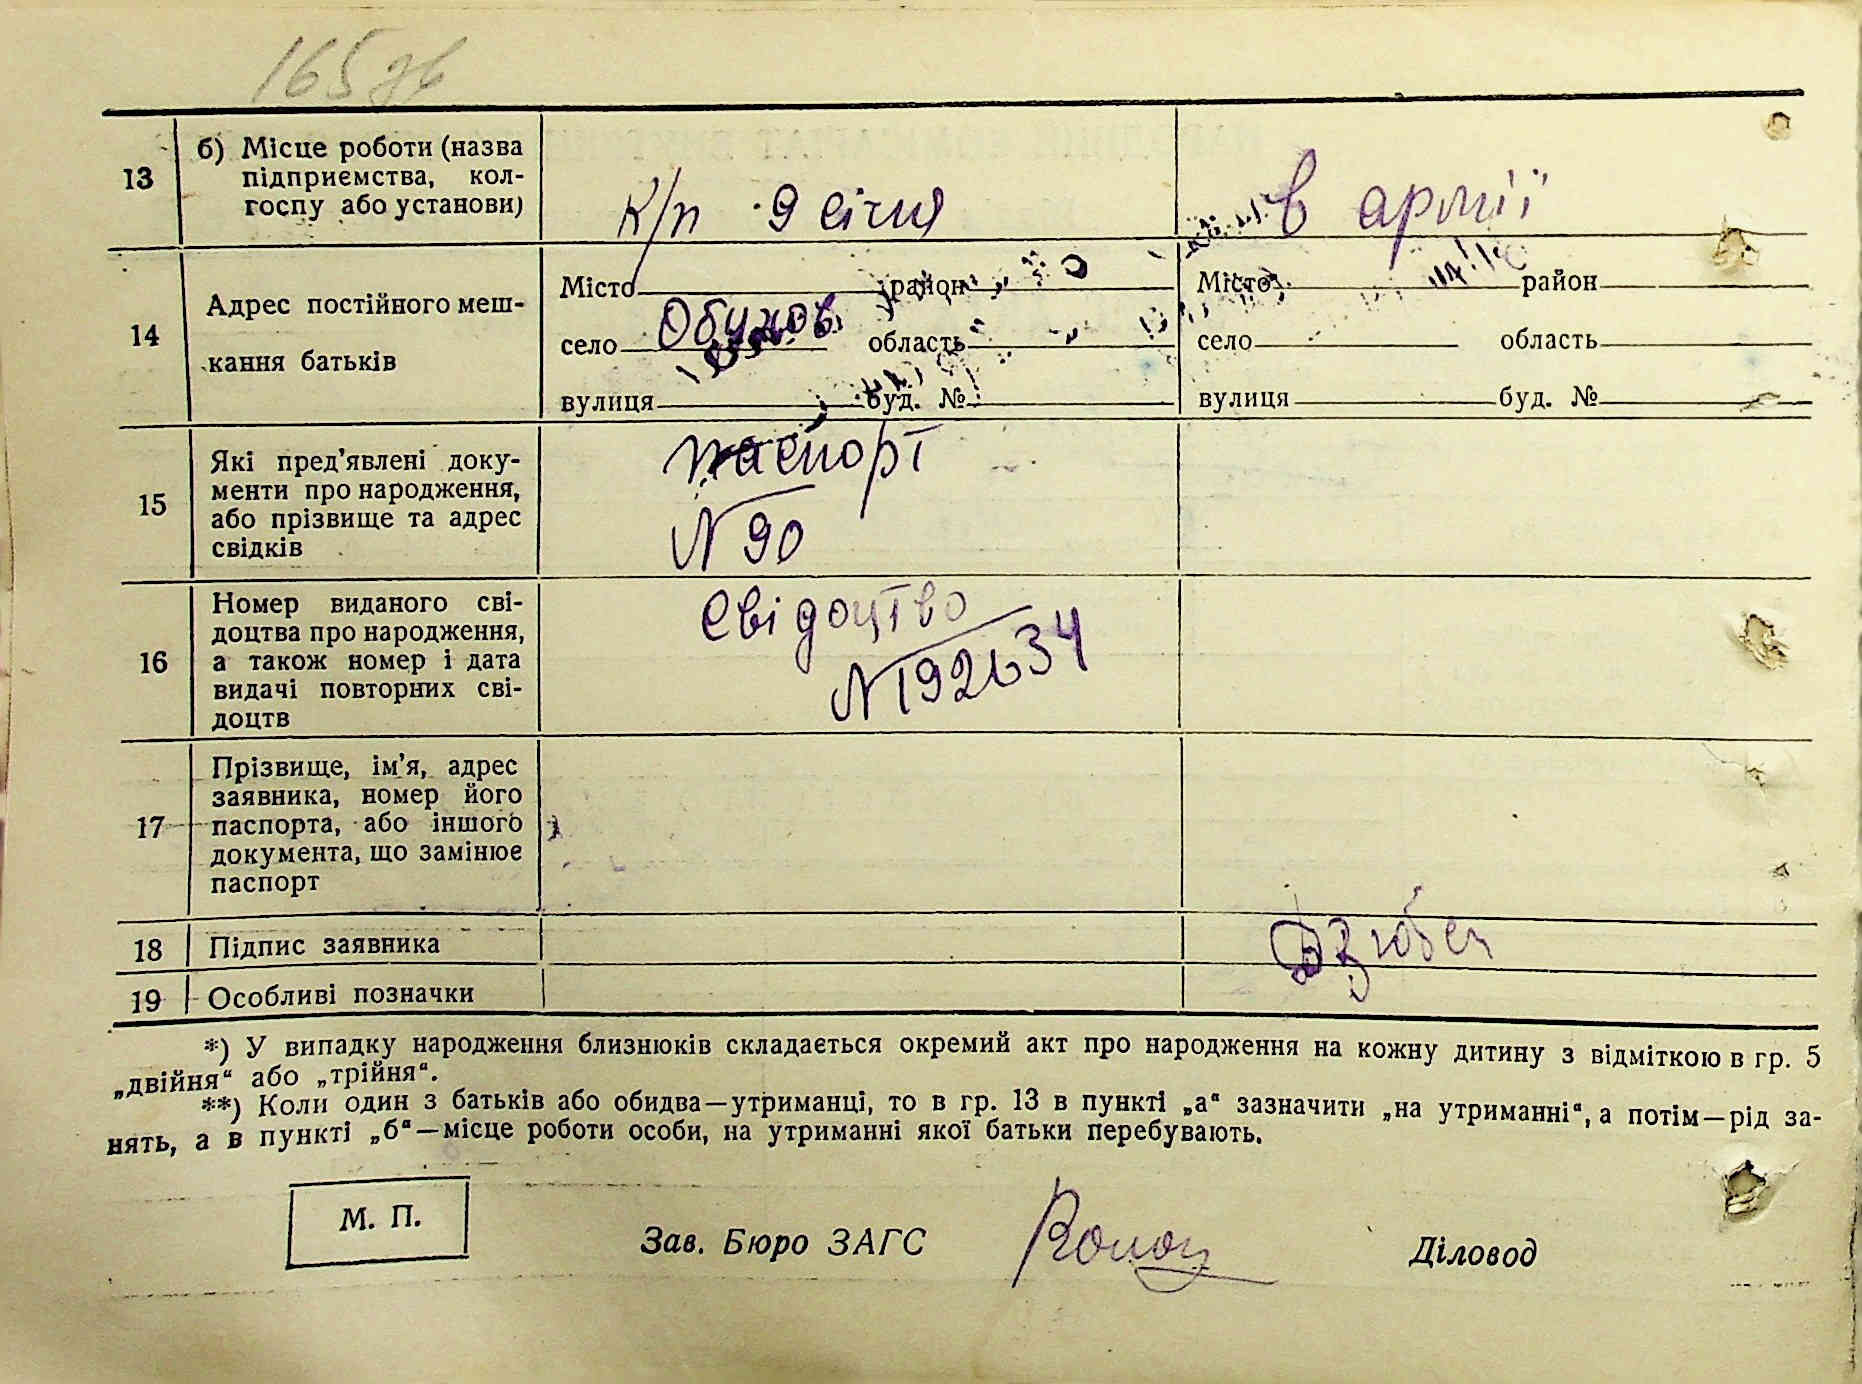 165 зв
13
б) Місце роботи (назва
підприємства, кол-
госпу або установи)
к/п 9 січня
в армії
14
Адрес постійного меш-
кання батьків
Місто район
село Обухов область
вулиця буд. №
Місто район
село область
вулиця буд. №
15
Які пред'явлені доку-
менти про народження,
або прізвище та адрес
свідків
паспорт
N 90
16
Номер виданого сві-
доцтва про народження,
а також номер і дата
видачі повторних сві-
доцтв
Свідоцтво
N 192634
17
Прізвище, ім'я, адрес
заявника, номер його
паспорта, або іншого
документа, що замінює
паспорт
18
Підпис заявника
19
Особливі позначки
*) У випадку народження близнюків складається окремий акт про народження на кожну дитину з відміткою в гр. 5
„двійня“ або „трійня“.
**) Коли один з батьків або обидва—утриманці, то в гр. 13 в пункті „а“ зазначити „на утриманні“, а потім—рід за-
нять, а в пункті „б“—місце роботи особи, на утриманні якої батьки перебувають.
М. П.
Зав. Бюро ЗАГС
Діловод